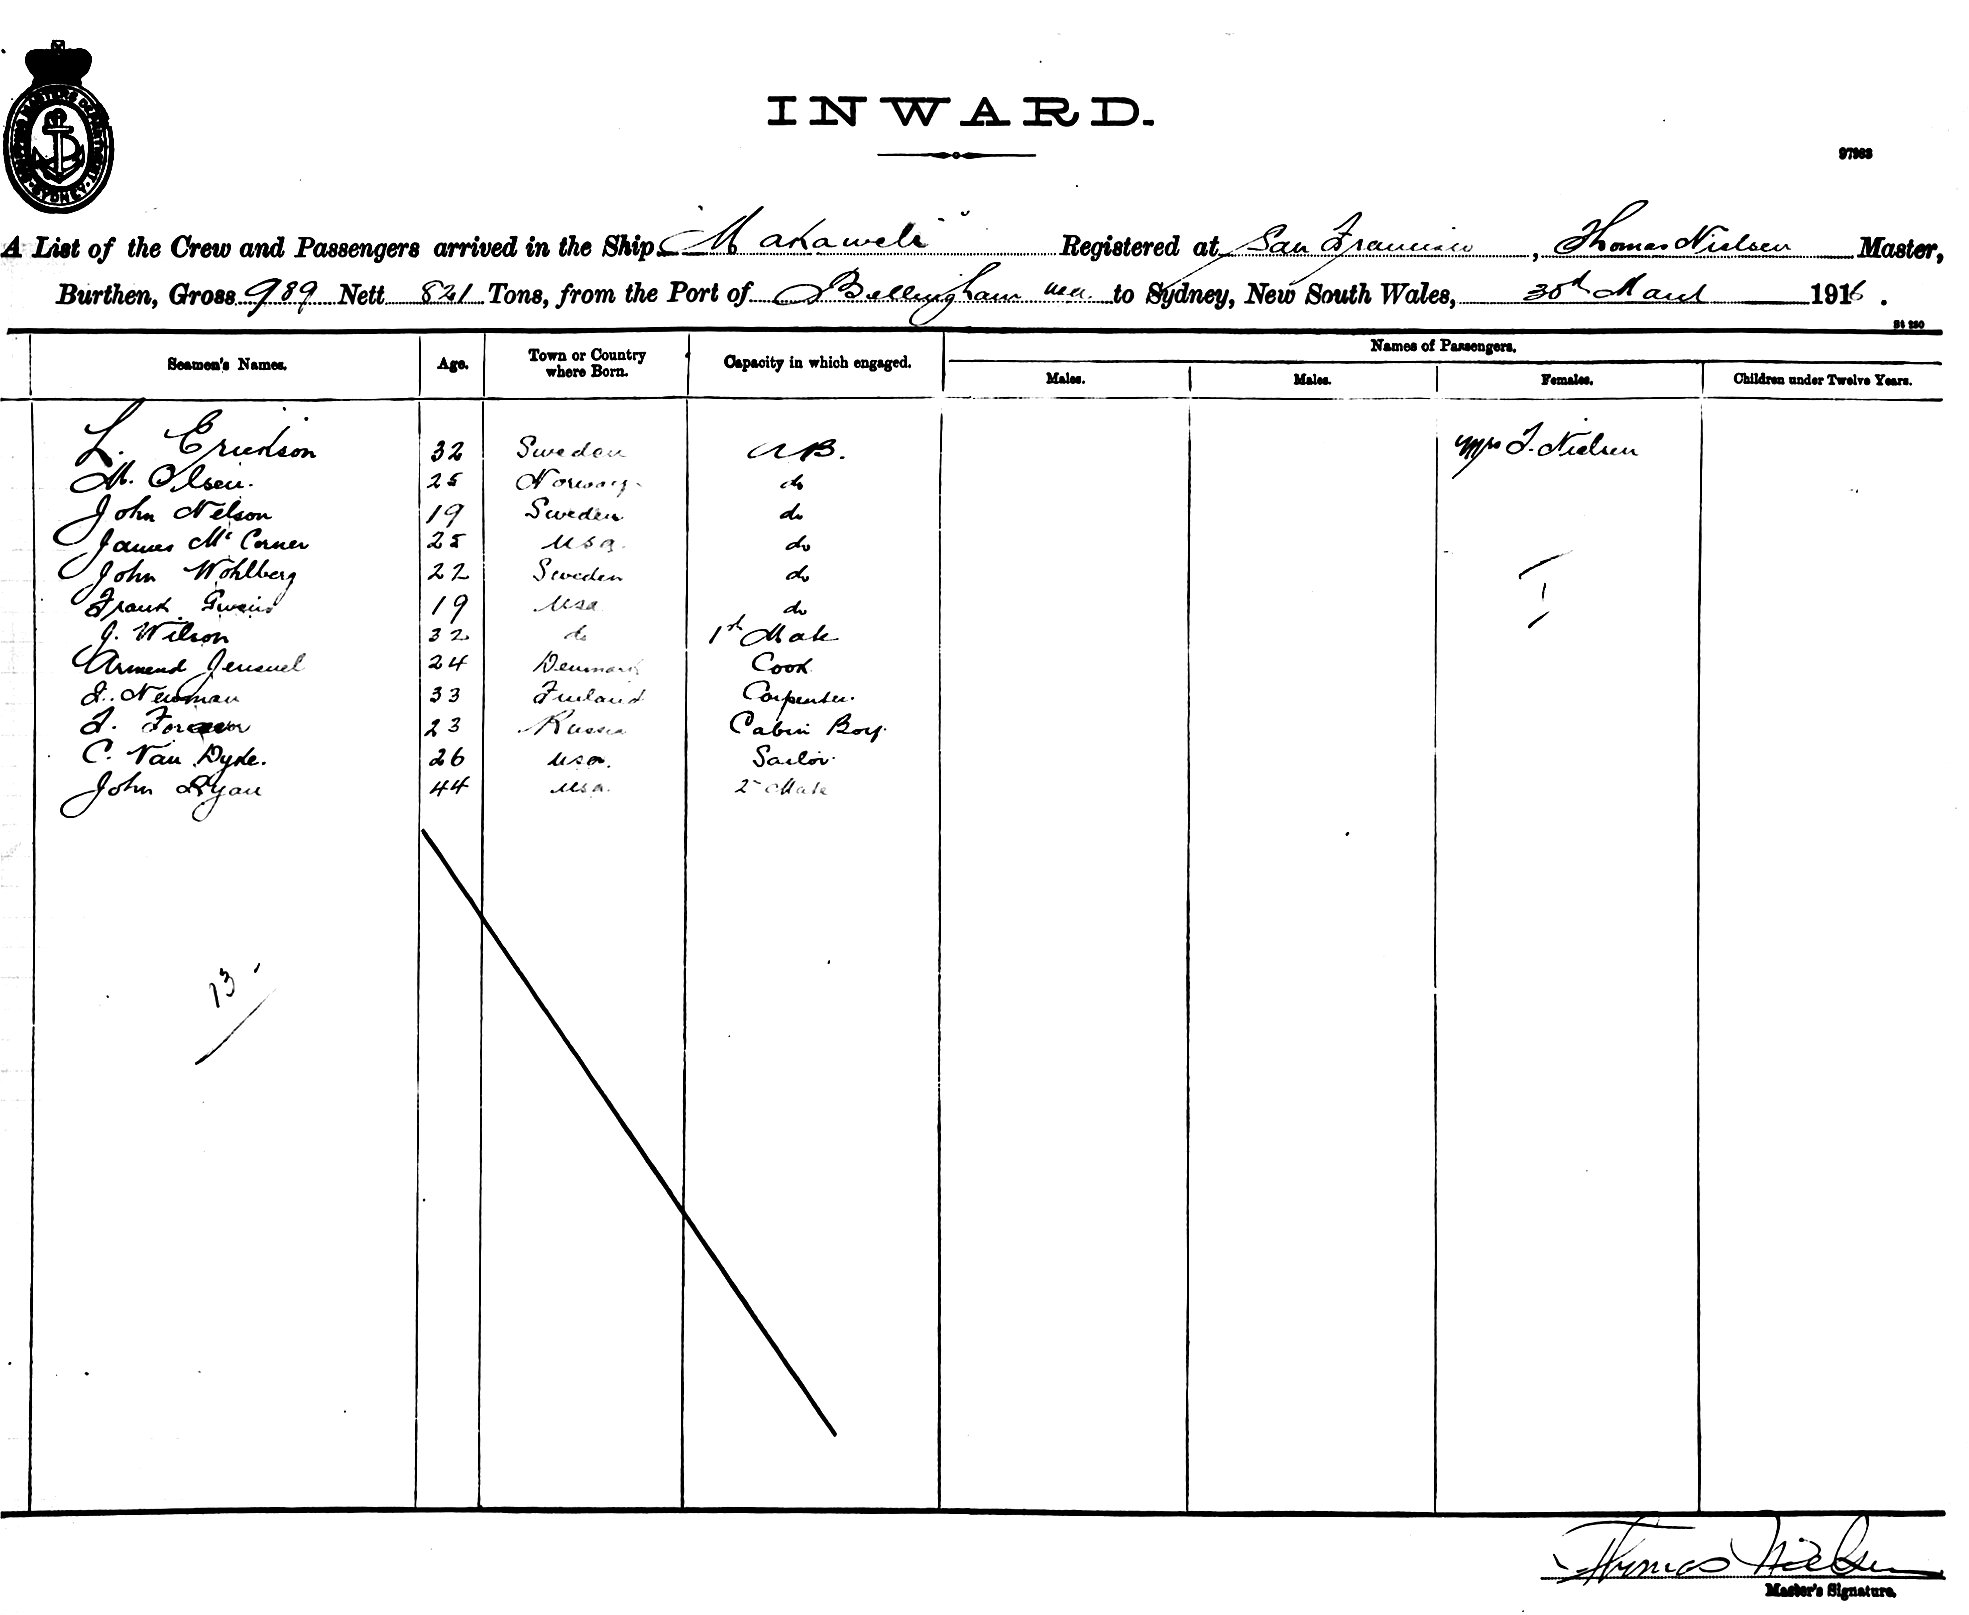 SHIPPING MASTERS DEPARTMENT SYDNEY
INWARD.
97963
A List of the Crew and Passengers arrived in the Ship "Makaweli" Registered at San Francisco, Thomas Nielsen Master,
Burthen, Gross 989 Nett 821 Tons, from the Port of Bellingham to Sydney, New South Wales, 30th March 1916.
Seamen's Names. Age. Town or Country where Born. Capacity in which engaged. Names of Passengers.
Males. Males. Females. Children under Twelve Years.
L. Erickson 32 Sweden AB. Mrs T. Nielsen
M. Olsen. 25 Norway do
John Nelson 19 Sweden do
James McCorner 25 USA. do
John Wohlberg 22 Sweden do
Frank 19 USA do
J. Wilson 32 do 1st Mate
Armend 24 Denmark Cook
Newman 33 Finland Carpenter.
23 Russia Cabin Boy.
C. Van Dyke. 26 USA. Sailor.
John Ryan 44 USA. 2 Mate
1
13
Thomas Nielsen
Master's Signature.